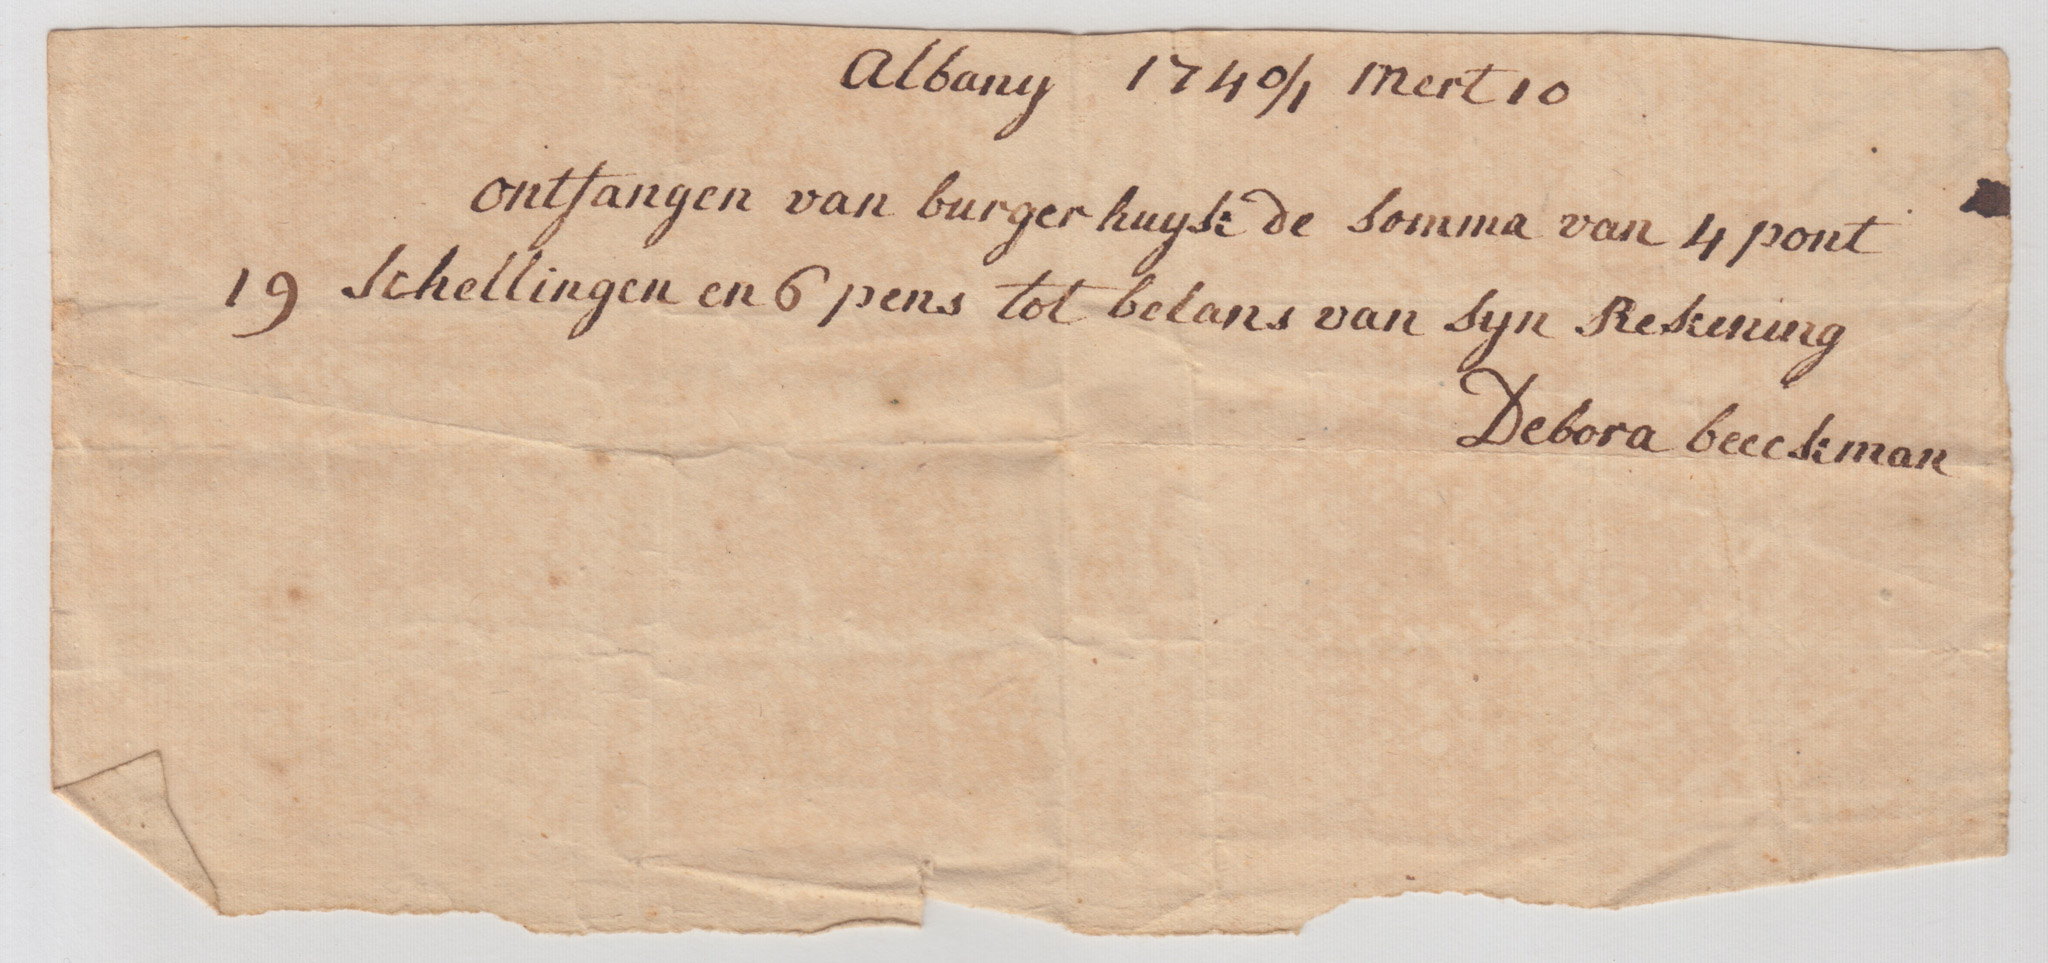 Albany 1740/1 Mert 10
ontfangen van burger huysk de somma van 4 pont
19 schellingen en 6 pens tot belans van syn Rekening
Debora beeckman